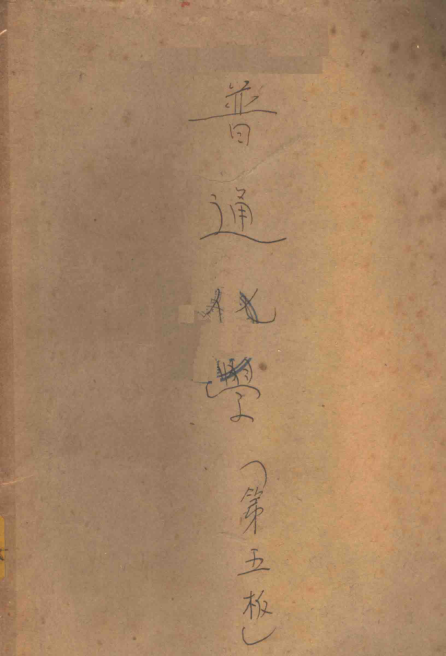 普通化學(第五板)